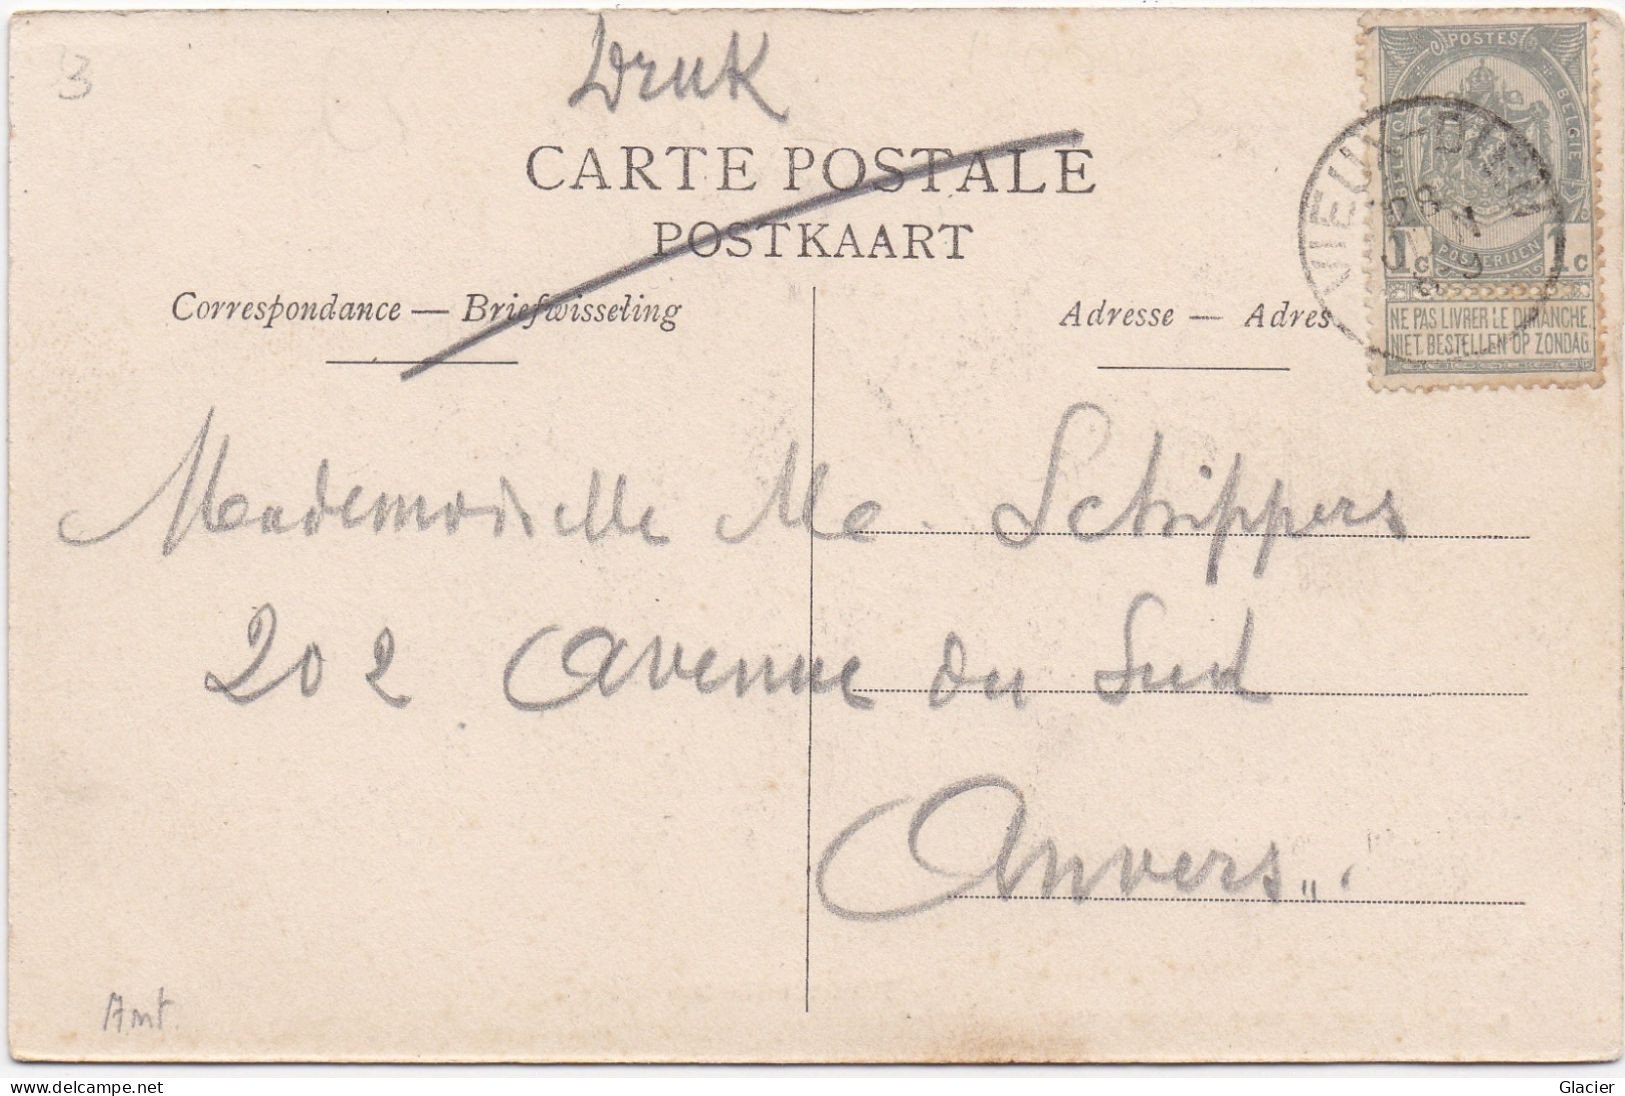 3
Druk
CARTE POSTALE
POSTKAART
Correspondance — Briefwisseling
Adresse — Adres
POSTES
BELGIQUE
BELGIE
POSTERIJEN
1c 1c
NE PAS LIVRER LE DIMANCHE
NIET BESTELLEN OP ZONDAG
VIEUX-DIEU
Mademoiselle Me. Schippers
202 Avenue du Sud
Anvers
Ant.
www.delcampe.net
Glacier